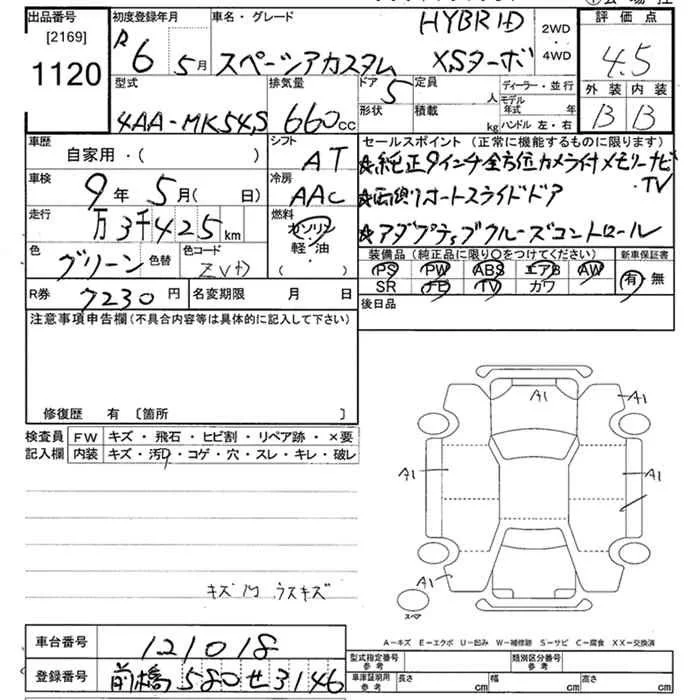 出品番号
[2169]
1120
初度登録年月
R6 5月
車名・グレード
スペーシアカスタム
HYBRID
XSターボ
2WD
・
4WD
評価点
4.5
外装 内装
B B
型式
4AA-MK54S
排気量
660cc
ドア
5
定員
人
形状
積載
kg
ディーラー・並行
モデル年式 年
ハンドル 左・右
車歴
自家用・( )
シフト
AT
車検
9年 5月( 日)
冷房
AAC
走行
万3千425km
燃料
ガソリン
軽・油
・
( )
色
グリーン
色替
色コード
ZVD
R券
7230円
名変期限 月 日
セールスポイント(正常に機能するものに限ります)
☆純正9インチ全方位カメラ付メモリーナビ
・TV
☆両側オートスライドドア
☆アダプティブクルーズコントロール
装備品(純正品に限り○をつけてください)
新車保証書
PS PW ABS エアB AW
SR ナビ TV カワ
有・無
後日品
注意事項申告欄(不具合内容等は具体的に記入して下さい)
修復歴 有 〔箇所 〕
検査員
記入欄
FW キズ・飛石・ヒビ割・リペア跡・×要
内装 キズ・汚・コゲ・穴・スレ・キレ・破レ
キズ 内 ウスキズ
A1
A1
A1
A1
A1
スペア
A－キズ E－エクボ U－凹み W－補修跡 S－サビ C－腐食 XX－交換済
車台番号
121018
登録番号
前橋580せ3146
型式指定番号
参考
類別区分番号
参考
車庫証明用
参考
長さ cm
幅 cm
高さ cm